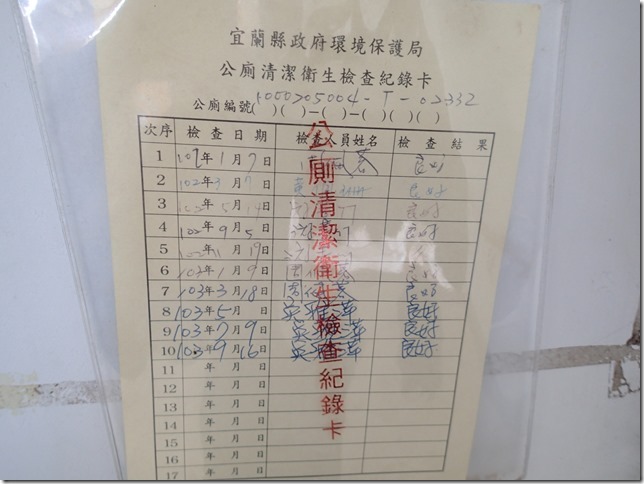 宜蘭縣政府環境保護局
公廁清潔衛生檢查紀錄卡
公廁編號( )( )－( )－( )( )( )
次序 檢查日期 檢查人員姓名 檢查結果
1 102年1月7日 良好
2 102年3月7日 良好
3 102年5月14日 良好
4 102年9月5日 良好
5 102年11月19日
6 103年1月9日 良好
7 103年3月18日 良好
8 103年5月 日 吳雅萍 良好
9 103年7月9日 吳雅萍 良好
10 103年9月16日 吳雅萍 良好
11 年 月 日
12 年 月 日
13 年 月 日
14 年 月 日
15 年 月 日
16 年 月 日
17 年 月 日
公廁清潔衛生檢查紀錄卡